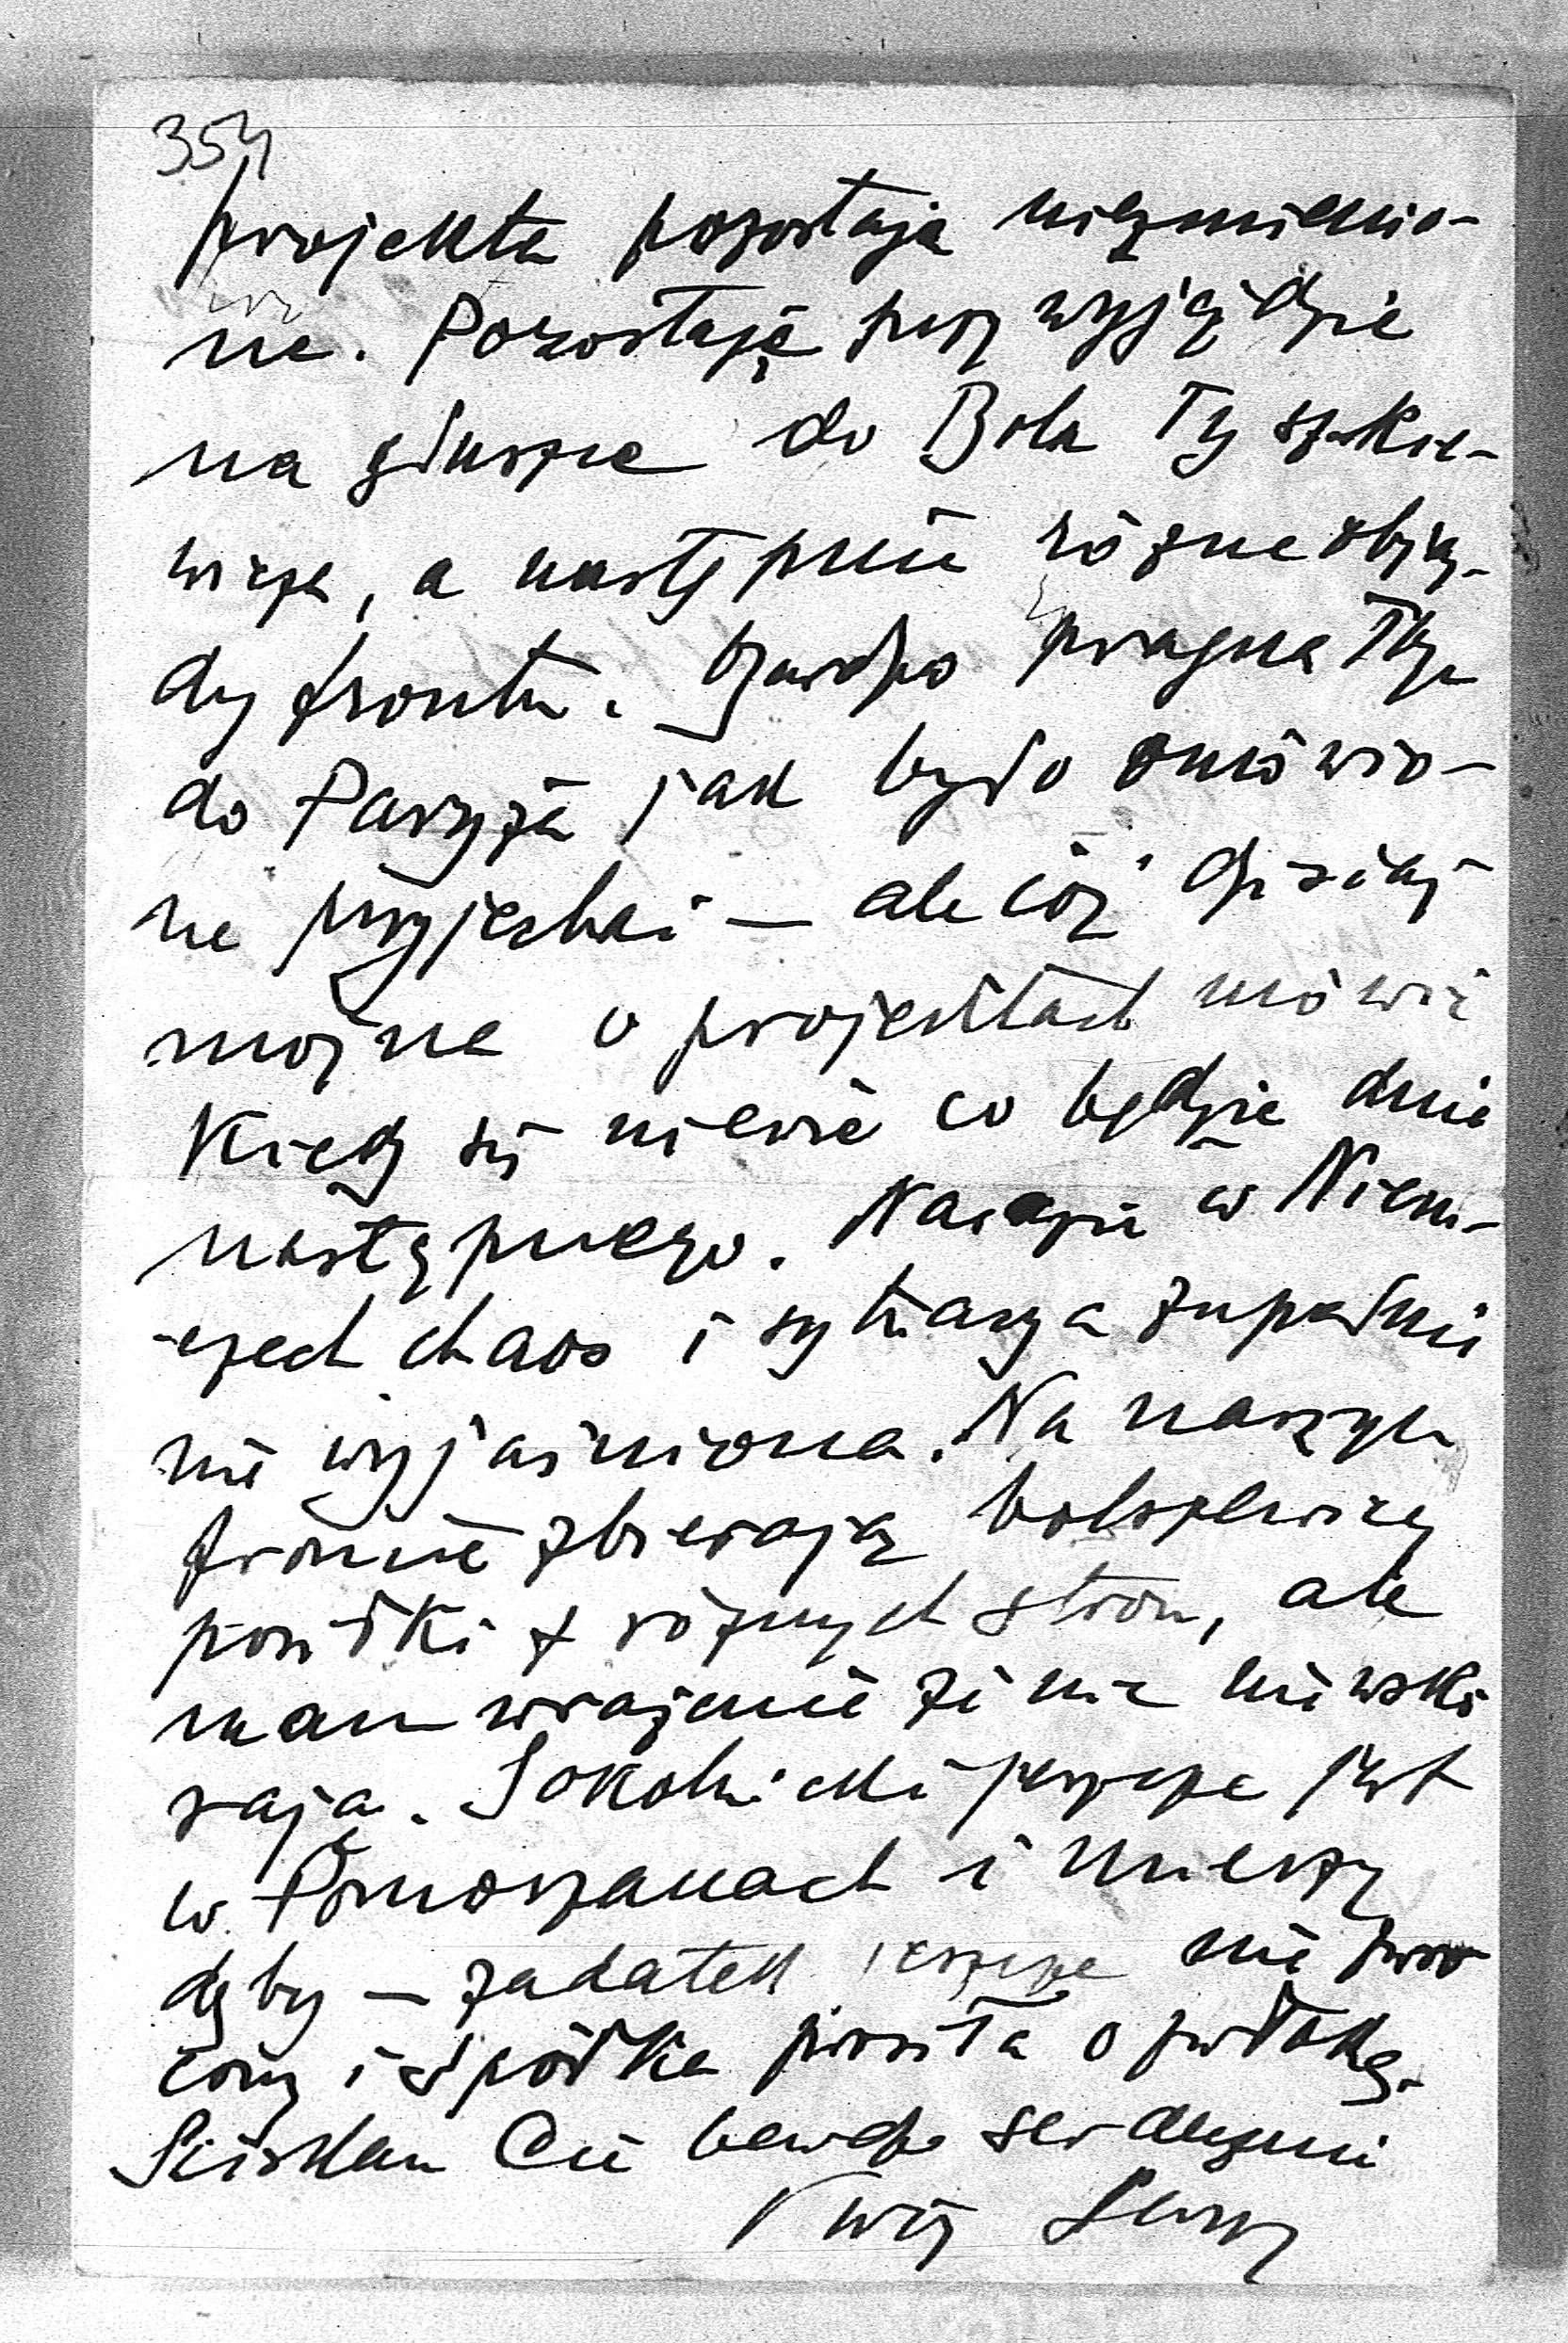 354
projekta pozostają niezmienio-
ne. Pozostaje przy wyjeździe
na głuszce do Bola Tyszkie-
wicza, a następnie różne objaz-
dy frontu. Bardzo pragnę
do Paryża jak było omówio-
ne przyjechać — ale cóż dzisiaj
można o projektach mówić
Kiedy się niewie co będzie dnia
następnego. Narazie w Niem-
czech chaos i sytuacya zupełnie
nie wyjaśniona. Na naszym
froncie zbierają bolszewicy
posiłki z różnych stron, ale
mam wrażenie że nic nie wskó
rają. Sokolnicki jeszcze jest
w Pomorzanach i mierzy
dęby — zadatek jeszcze nie zwró
cony i spółka prosiła o zwłokę.
Ściskam Cię bardzo serdecznie
Twój